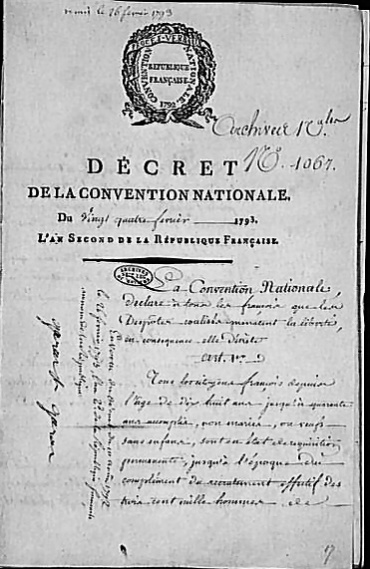 remis le 26 fevrier 1793
PROCES-VERBAUX
CONVENTION NATIONALE
REPUBLIQUE
FRANÇAISE
1792
Archives Nles
No. 1067.
DÉCRET
DE LA CONVENTION NATIONALE,
Du vingt quatre fevrier 1793.
L'AN SECOND DE LA RÉPUBLIQUE FRANÇAISE.
ARCHIVES
La Convention Nationale,
declare a tous les francois que les
Despotes coalisés menacent la liberté,
en consequence elle décrete
Art. 1er
Tous les citoyens francois depuis
l'age de dix huit ans jusqu'a quarante
ans accomplis, non mariés, ou veufs
sans enfans, sont en état de requisition
permanente, jusqu'a l'époque du
complément du recrutement effectif des
trois cent mille hommes de
garat
17